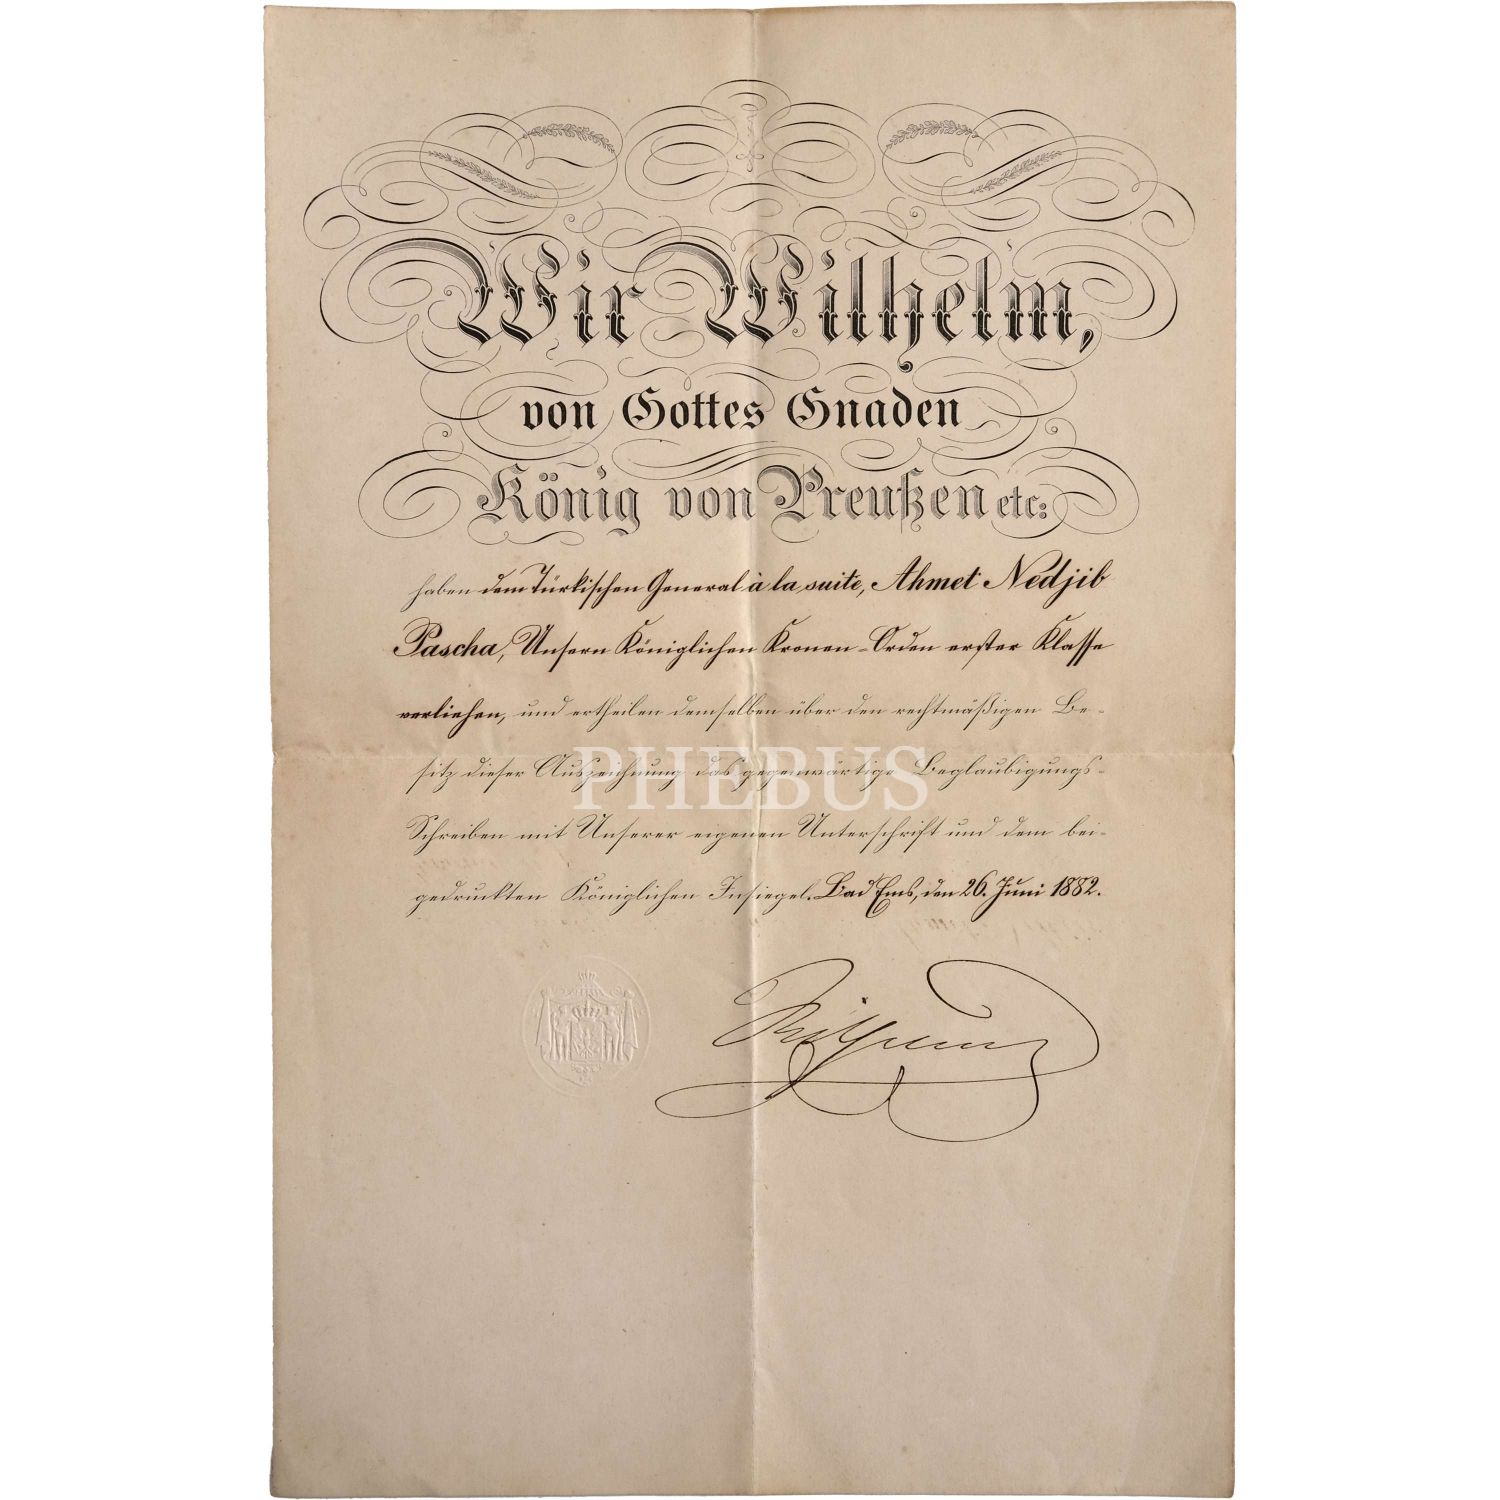 Wir Wilhelm,
von Gottes Gnaden
König von Preußen etc:
haben dem Türkischen General à la suite, Ahmet Nedjib
Pascha, Unsern Königlichen Kronen-Orden erster Klasse
verliehen, und ertheilen demselben über den rechtmäßigen Be-
sitz dieser Auszeichnung das gegenwärtige Beglaubigungs-
PHEBUS
Schreiben mit Unserer eigenen Unterschrift und dem bei-
gedruckten Königlichen Insiegel. Bad Ems, den 26. Juni 1882.
Wilhelm